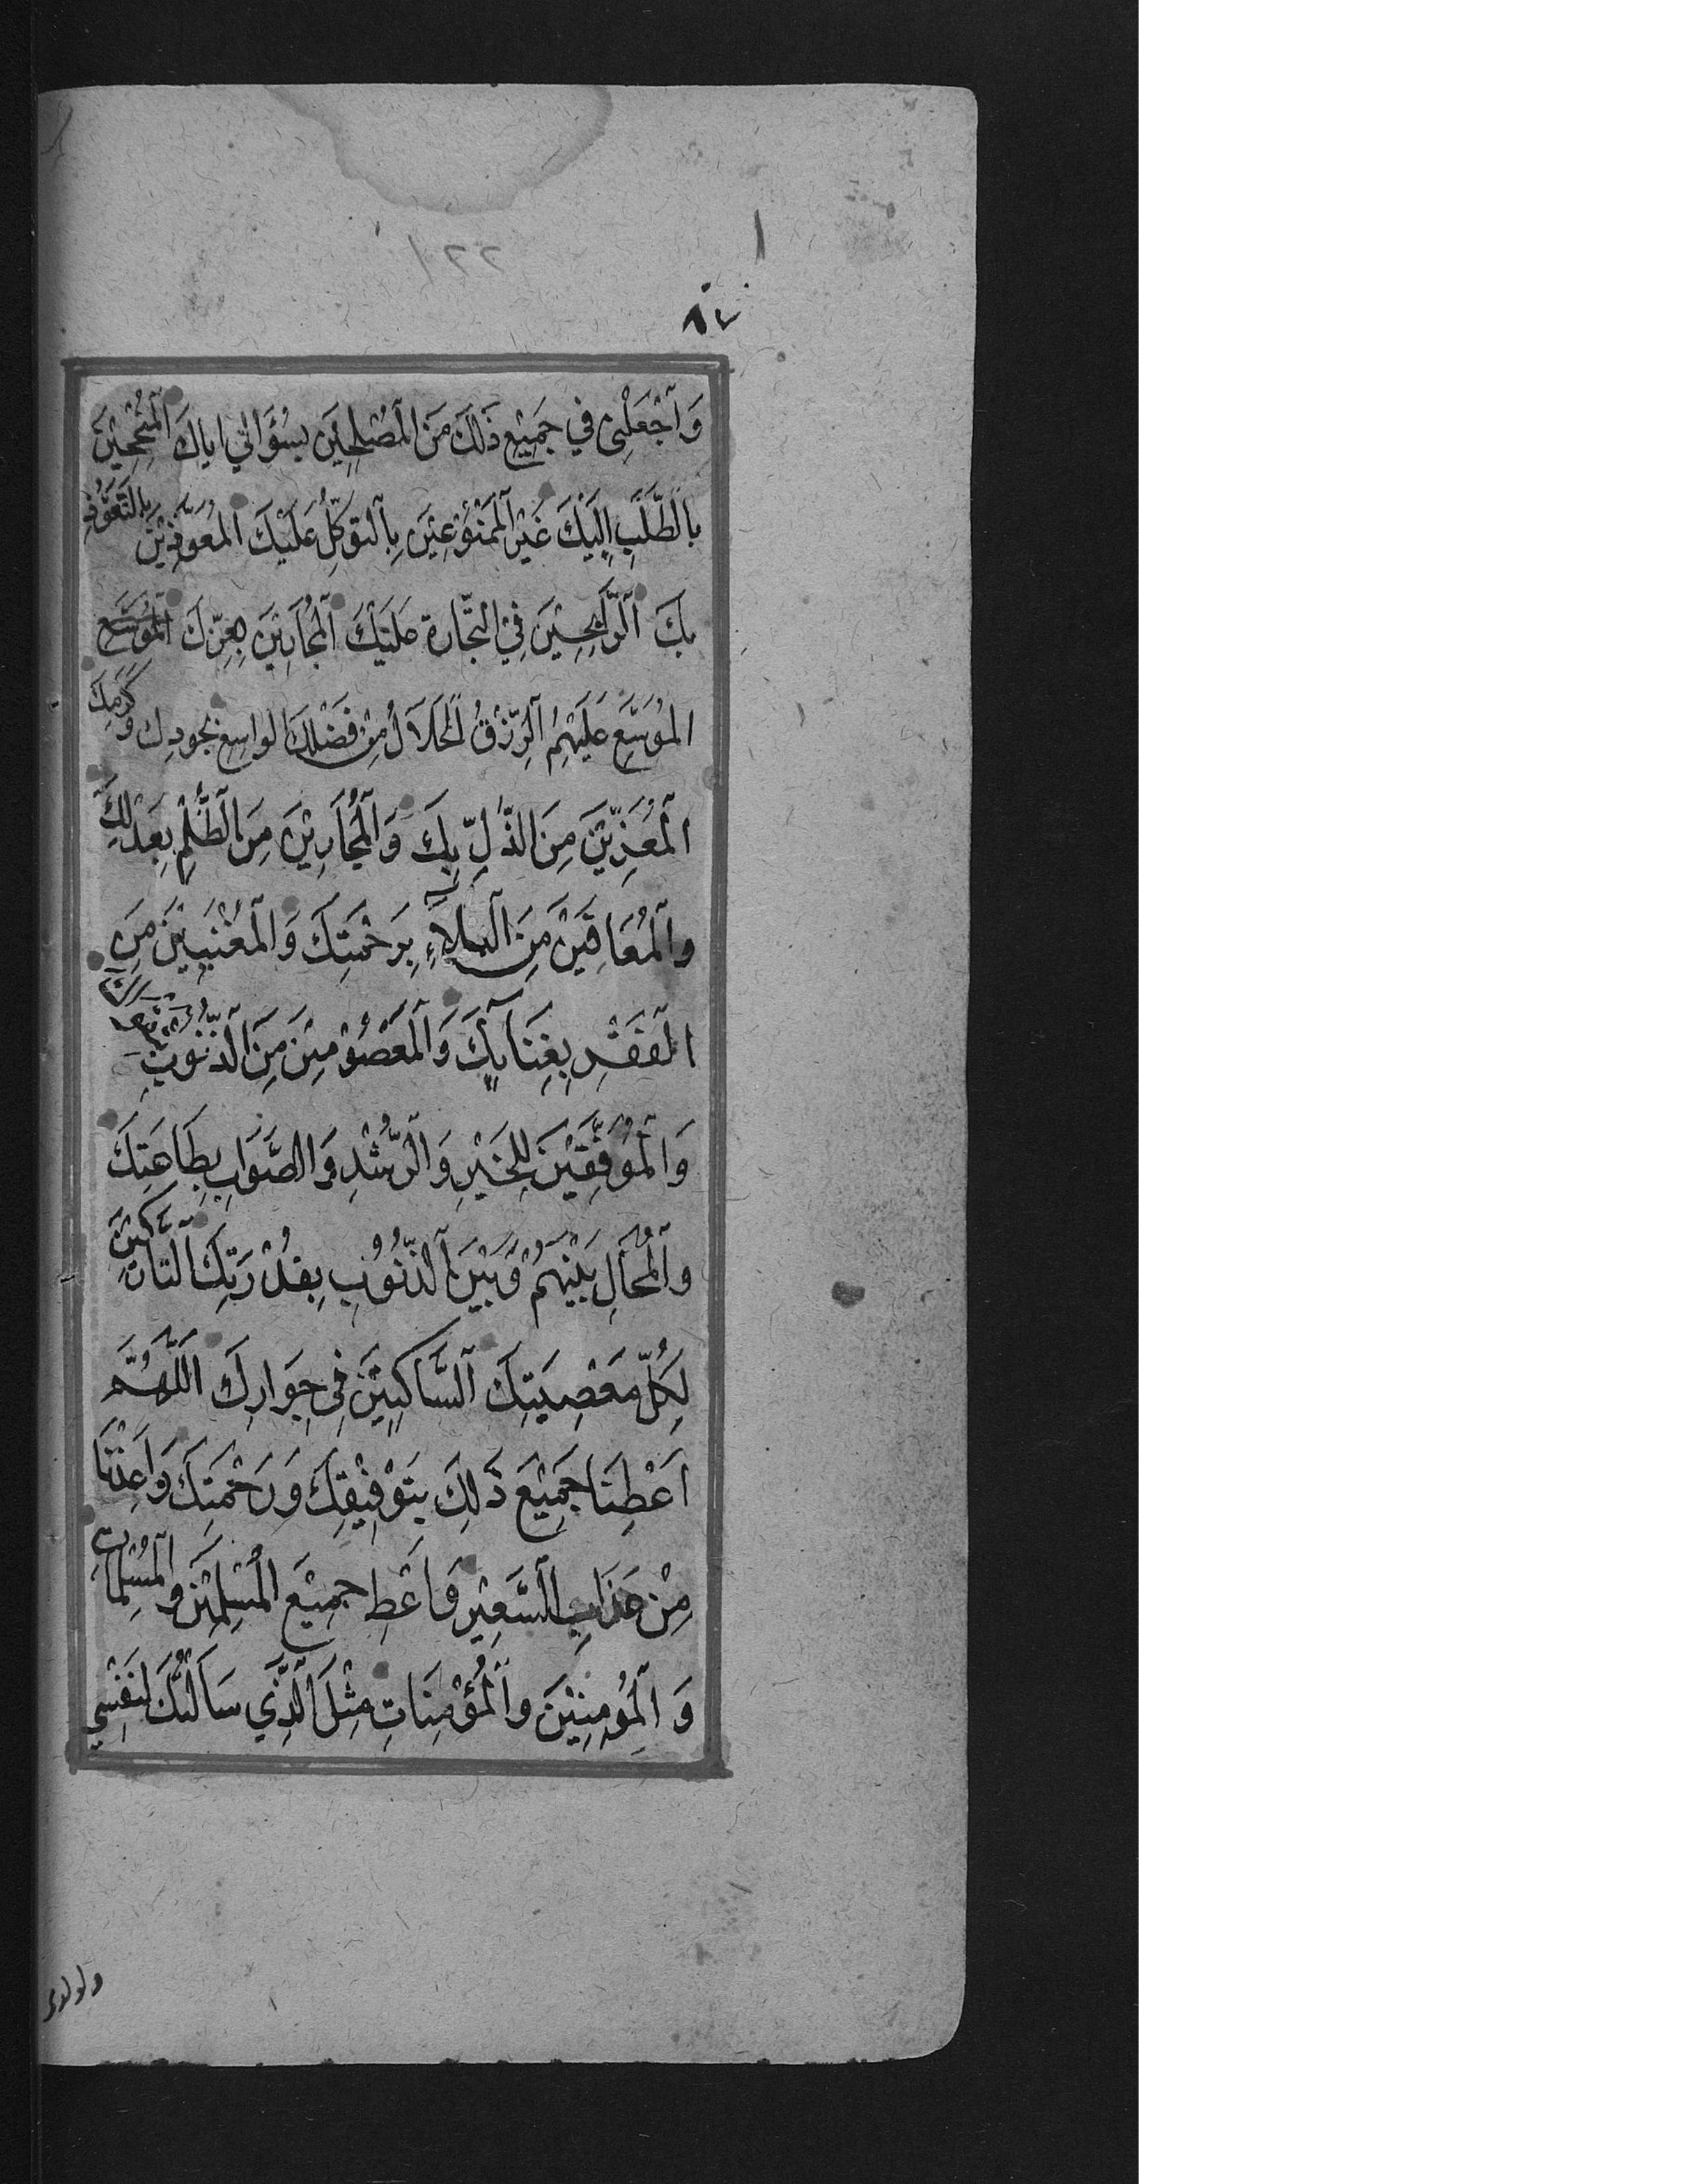 ٨٧
وَٱجْعَلْنِى فِي جَمِيْعِ ذَلِكَ مِنَ ٱلْمُصْلِحِيْنَ بِسُؤَالِي اِيَاكَ ٱلْمُنْجِحِيْنَ
بِالْطَّلَبِ اِلَيْكَ غَيْرِ ٱلْمَمْنُوْعِيْنَ بِٱلتَوَكُّلِ عَلَيْكَ ٱلْمُعَوَّذِيْنَ بِالتَّعَوُّذِ
بِكَ ٱلرَّابِحِيْنَ فِي التِّجَارَة عَلَيْكَ ٱلْمُجَارِيْنَ بِعِزِّكَ
الْمُوَسَّعِ عَلَيْهِمُ ٱلرِّزْقُ ٱلْحَلَالُ مِنْ فَضْلِكَ الْوَاسِعِ بِجُودِكَ وَكَرَمِكَ
ٱلْمُعَزِّيْنَ مِنَ الذُّلِّ بِكَ وَٱلْمُجَارِيْنَ مِنَ ٱلظُّلْمِ بِعَدْلِكَ
وَٱلْمُعَافِيْنَ مِنَ ٱلْبَلَاءِ بِرَحْمَتِكَ وَٱلْمُغْنِيِيْنَ مِنَ
الْفَقْرِ بِغِنَائِكَ وَٱلْمَعْصُوْمِيْنَ مِنَ ٱلذُّنُوْبِ
وَٱلْمُوَفَّقِيْنَ لِلْخَيْرِ وَٱلرُّشْدِ وَالصَّوَابِ بِطَاعَتِكَ
وَٱلْمُحَالِ بَيْنَهُمْ وَبَيْنَ ٱلذُّنُوْبِ بِقُدْرَتِكَ ٱلتَّارِكِيْنَ
لِكُلِّ مَعْصِيَتِكَ ٱلسَّاكِنِيْنَ فِى جِوَارِكَ اَللّٰهُمَّ
اَعْطِنَا جَمِيْعَ ذَلِكَ بِتَوْفِيْقِكَ وَرَحْمَتِكَ وَاَعِذْنَا
مِنْ عَذَابِ ٱلسَّعِيْرِ وَاَعْطِ جَمِيْعَ الْمُسْلِمِيْنَ وَٱلْمُسْلِمَاتِ
وَ ٱلْمُؤْمِنِيْنَ وَٱلْمُؤْمِنَاتِ مِثْلَ ٱلَّذِي سَاَلْتُكَ لِنَفْسِي